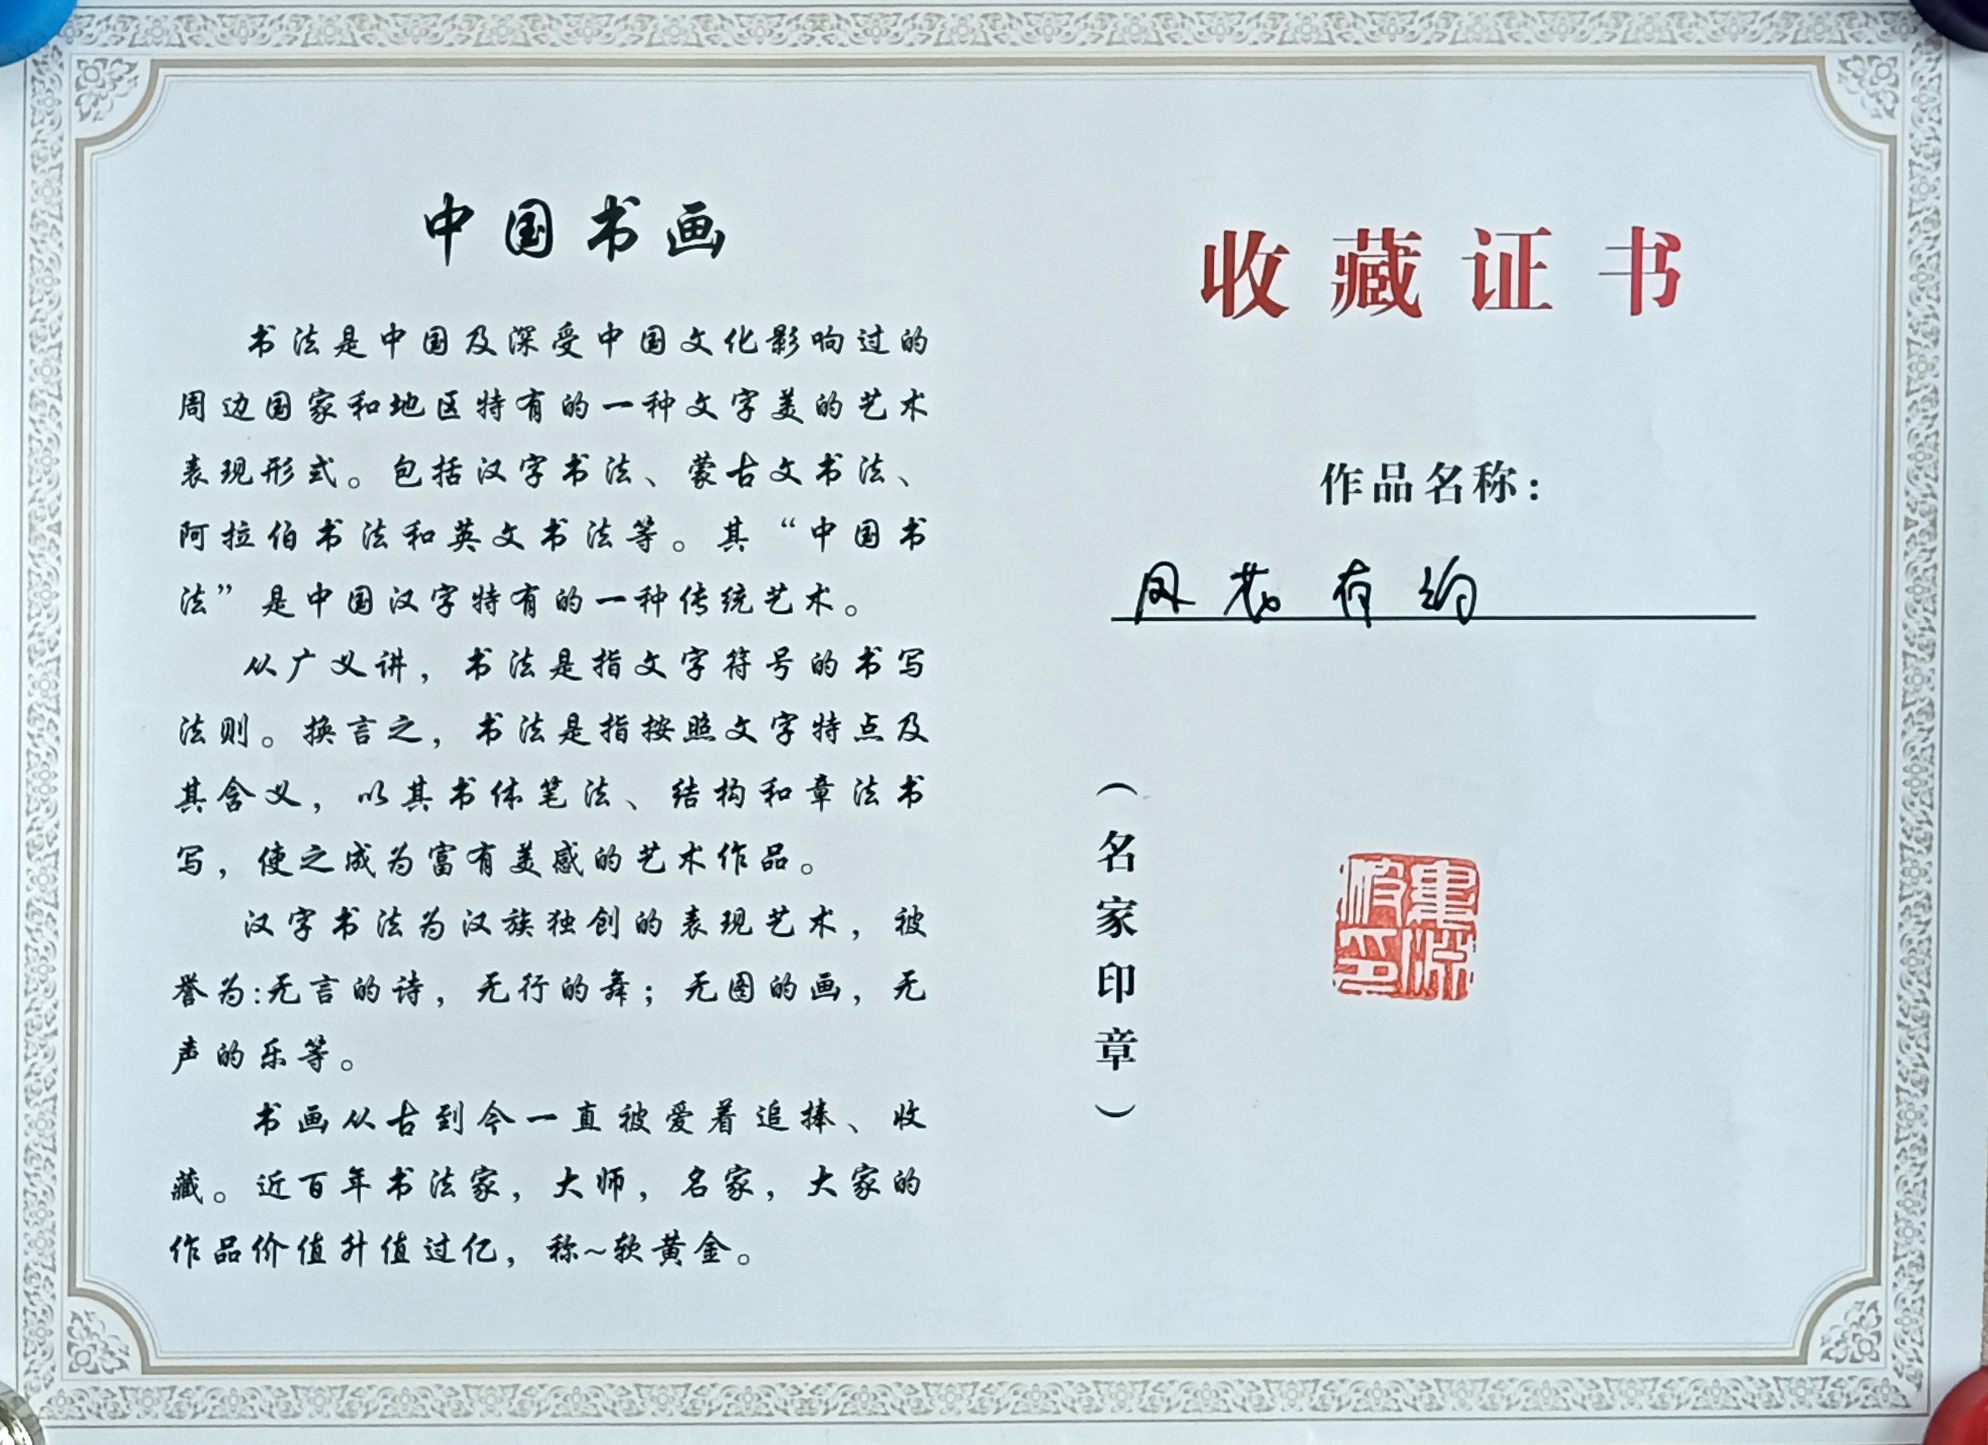 中国书画
书法是中国及深受中国文化影响过的
周边国家和地区特有的一种文字美的艺术
表现形式。包括汉字书法、蒙古文书法、
阿拉伯书法和英文书法等。其“中国书
法”是中国汉字特有的一种传统艺术。
从广义讲，书法是指文字符号的书写
法则。换言之，书法是指按照文字特点及
其含义，以其书体笔法、结构和章法书
写，使之成为富有美感的艺术作品。
汉字书法为汉族独创的表现艺术，被
誉为:无言的诗，无行的舞；无图的画，无
声的乐等。
书画从古到今一直被爱着追捧、收
藏。近百年书法家，大师，名家，大家的
作品价值升值过亿，称~软黄金。
收藏证书
作品名称:
有约
（名家印章）